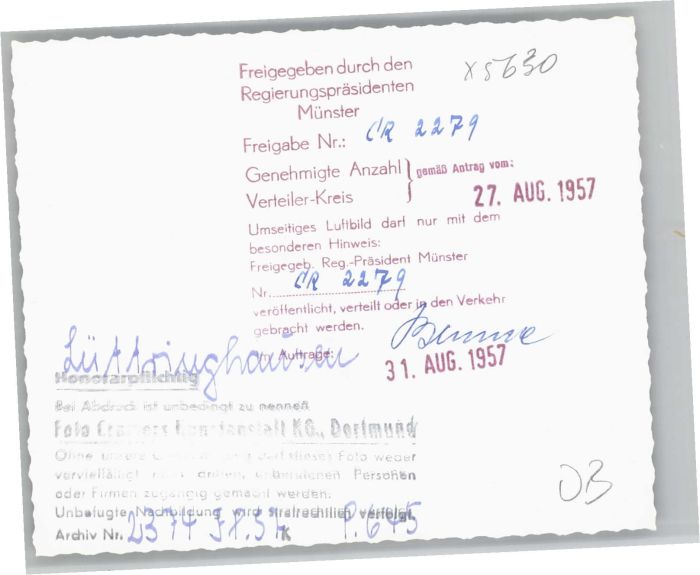 Freigegeben durch den
Regierungspräsidenten
Münster
X 5630
Freigabe Nr.: CR 2279
Genehmigte Anzahl } gemäß Antrag vom:
Verteiler-Kreis
27. AUG. 1957
Umseitiges Luftbild darf nur mit dem
besonderen Hinweis:
Freigegeb. Reg.-Präsident Münster
Nr. CR 2279
veröffentlicht, verteilt oder in den Verkehr
gebracht werden.
Im Auftrage:
31. AUG. 1957
Lüttringhausen
Honorarpflichtig
Bei Abdruck ist unbedingt zu nennen
Foto Cramers Kunstanstalt KG., Dortmund
Ohne unsere Genehmigung darf dieses Foto weder
vervielfältigt noch dritten, unberufenen Personen
oder Firmen zugängig gemacht werden.
Unbefugte Nachbildung wird strafrechtlich verfolgt.
Archiv Nr. 2374 K P. 645
OB